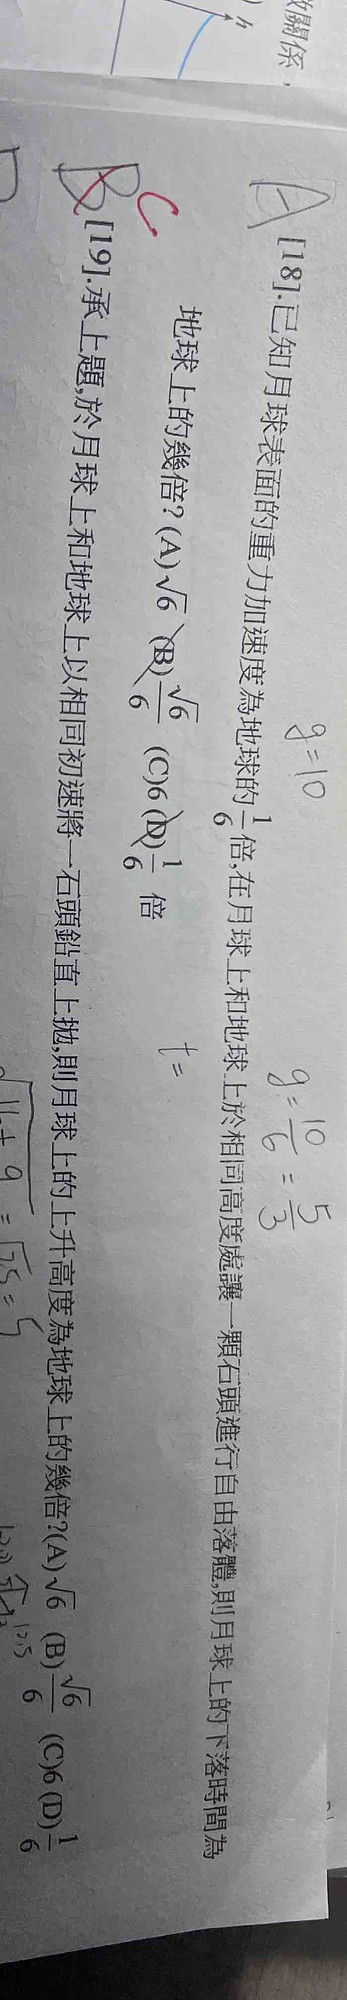 關係,
h
A
g=10
g=10/6=5/3
[18].已知月球表面的重力加速度為地球的1/6倍,在月球上和地球上於相同高度處讓一顆石頭進行自由落體,則月球上的下落時間為
地球上的幾倍?(A)√6 (B)√6/6 (C)6 (D)1/6 倍
t=
B
C
[19].承上題,於月球上和地球上以相同初速將一石頭鉛直上拋,則月球上的上升高度為地球上的幾倍?(A)√6 (B)√6/6 (C)6 (D)1/6
√16+9=√25=5